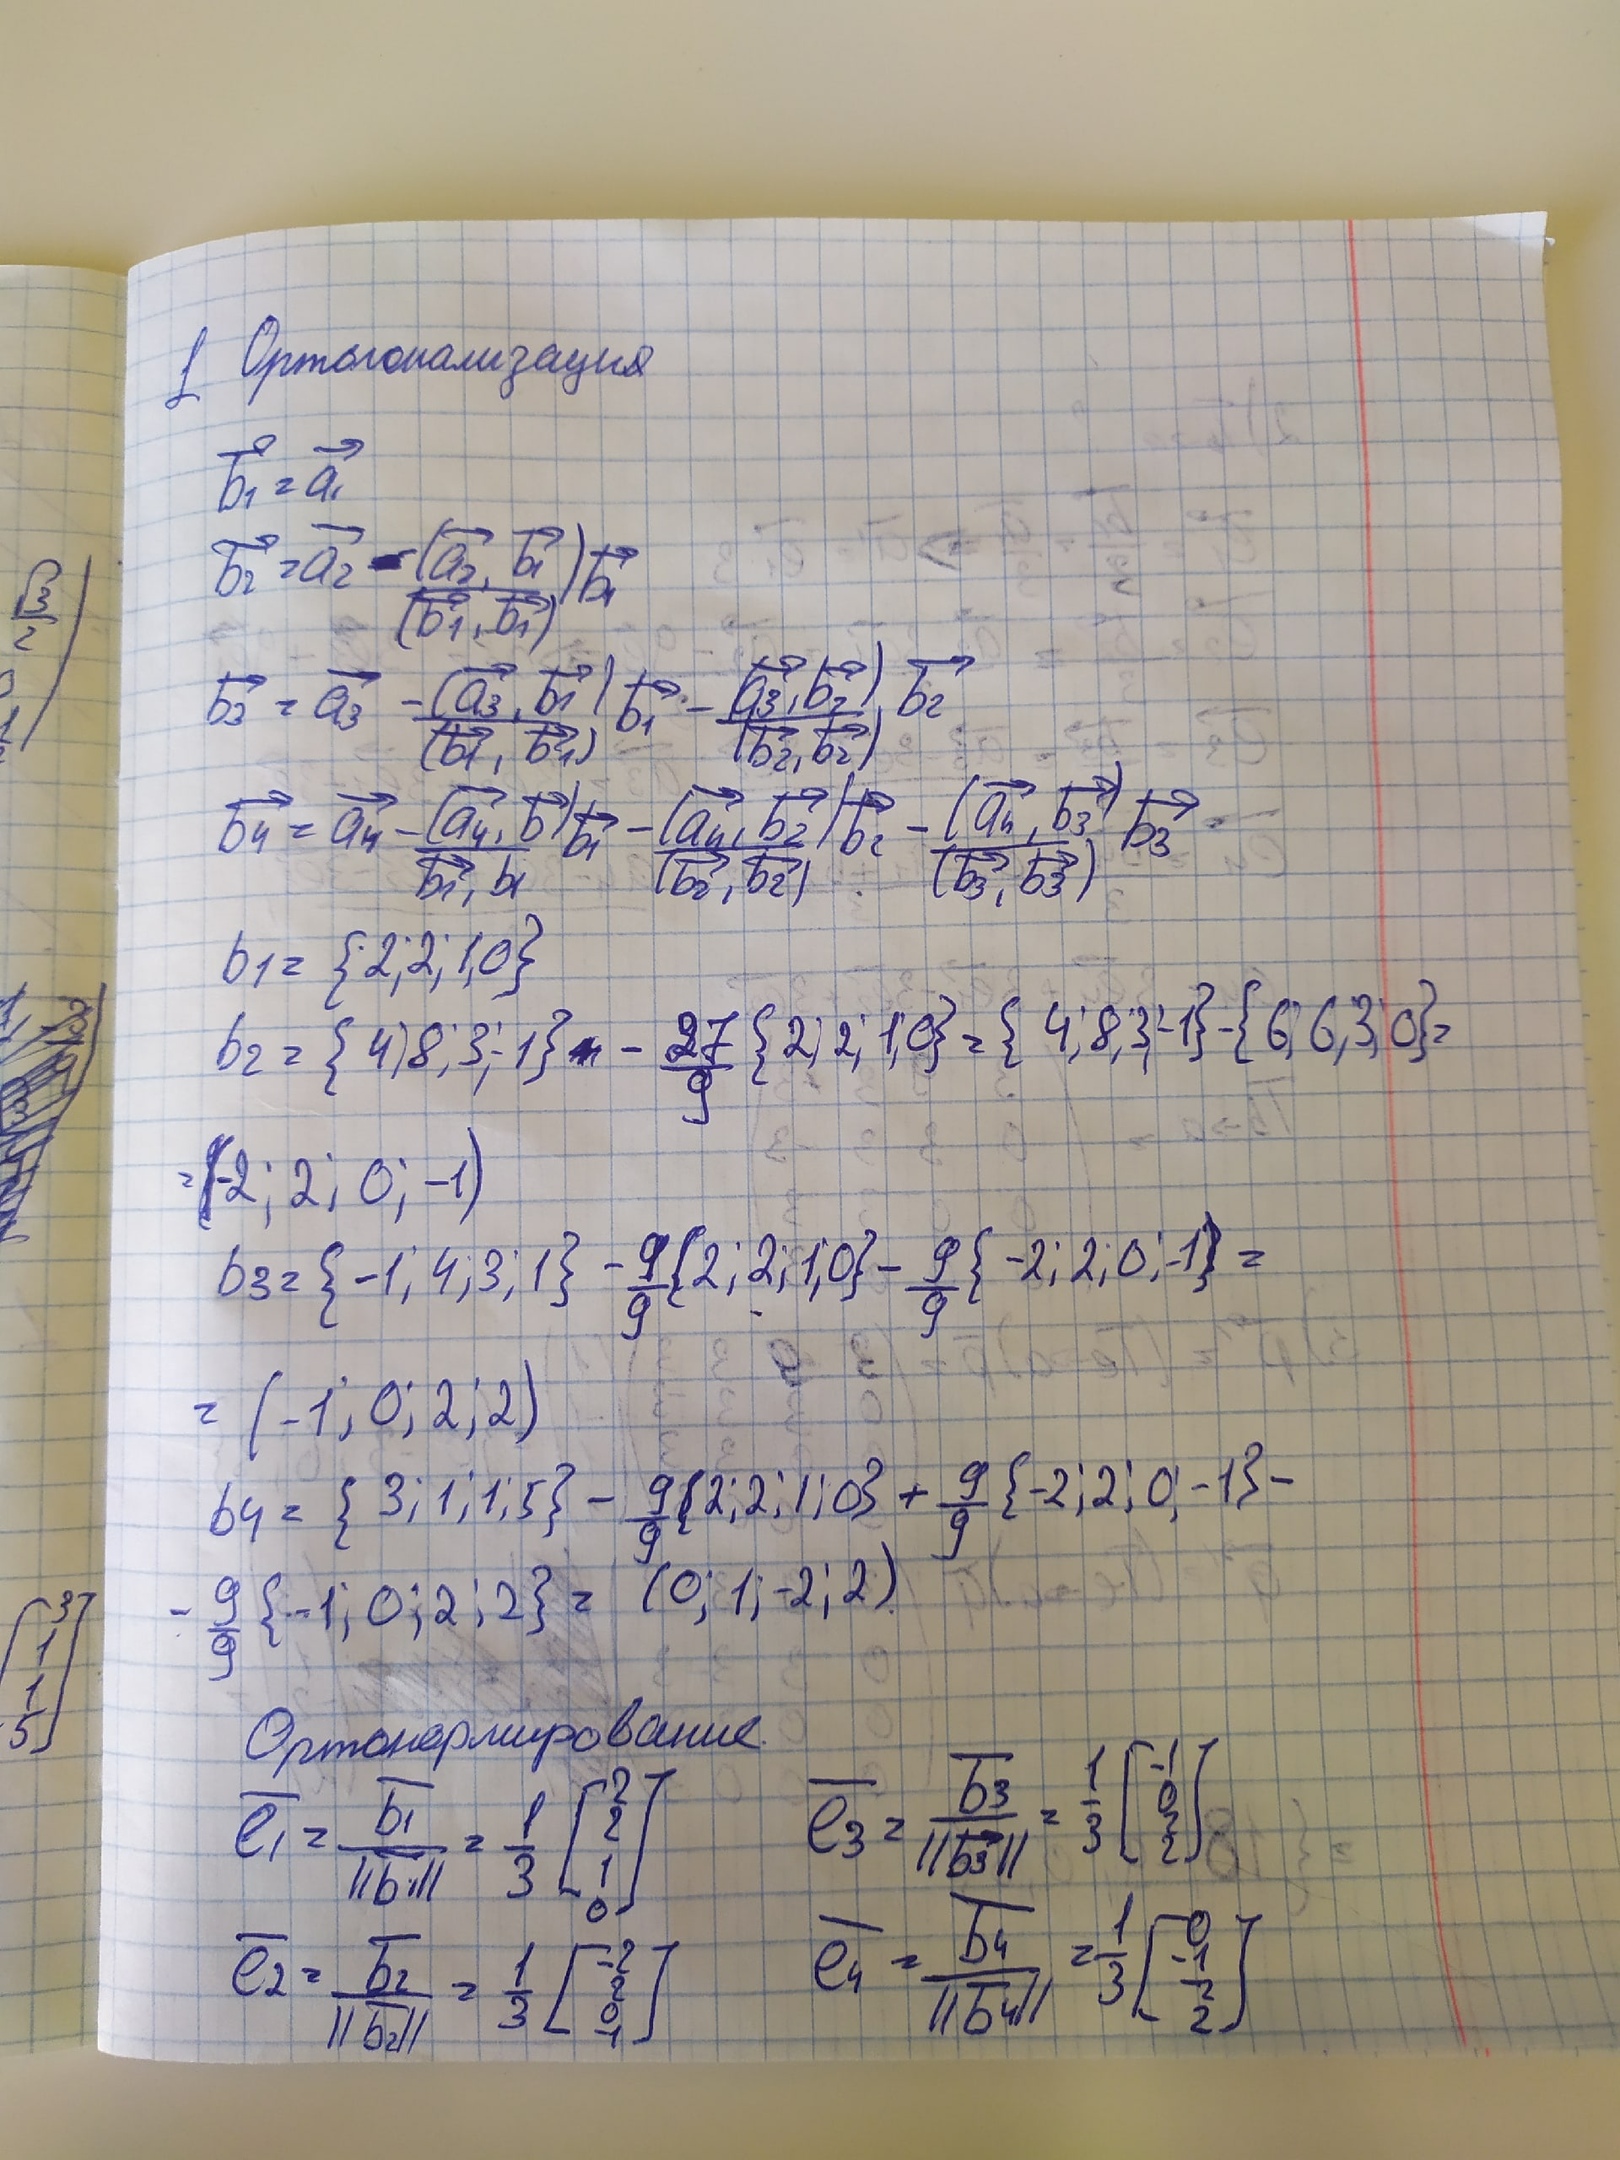 1 Ортогонализация
b₁ = a₁
b₂ = a₂ - (a₂, b₁)/(b₁, b₁) b₁
b₃ = a₃ - (a₃, b₁)/(b₁, b₁) b₁ - (a₃, b₂)/(b₂, b₂) b₂
b₄ = a₄ - (a₄, b)/b₁, b₁ b₁ - (a₄, b₂)/(b₂, b₂) b₂ - (a₄, b₃)/(b₃, b₃) b₃
b1 = {2; 2; 1; 0}
b2 = {4; 8; 3; -1} - 27/9 {2; 2; 1; 0} = {4; 8; 3; -1} - {6; 6; 3; 0} =
= (-2; 2; 0; -1)
b3 = {-1; 4; 3; 1} - 9/9 {2; 2; 1; 0} - 9/9 {-2; 2; 0; -1} =
= (-1; 0; 2; 2)
b4 = {3; 1; 1; 5} - 9/9 {2; 2; 1; 0} + 9/9 {-2; 2; 0; -1} -
- 9/9 {-1; 0; 2; 2} = (0; 1; -2; 2)
Ортонормирование
e₁ = b₁/||b₁|| = 1/3 [2 2 1 0] e₃ = b₃/||b₃|| = 1/3 [-1 0 2 2]
e₂ = b₂/||b₂|| = 1/3 [-2 2 0 -1] e₄ = b₄/||b₄|| = 1/3 [0 -1 2 2]
√3/2
[3 1 1 5]